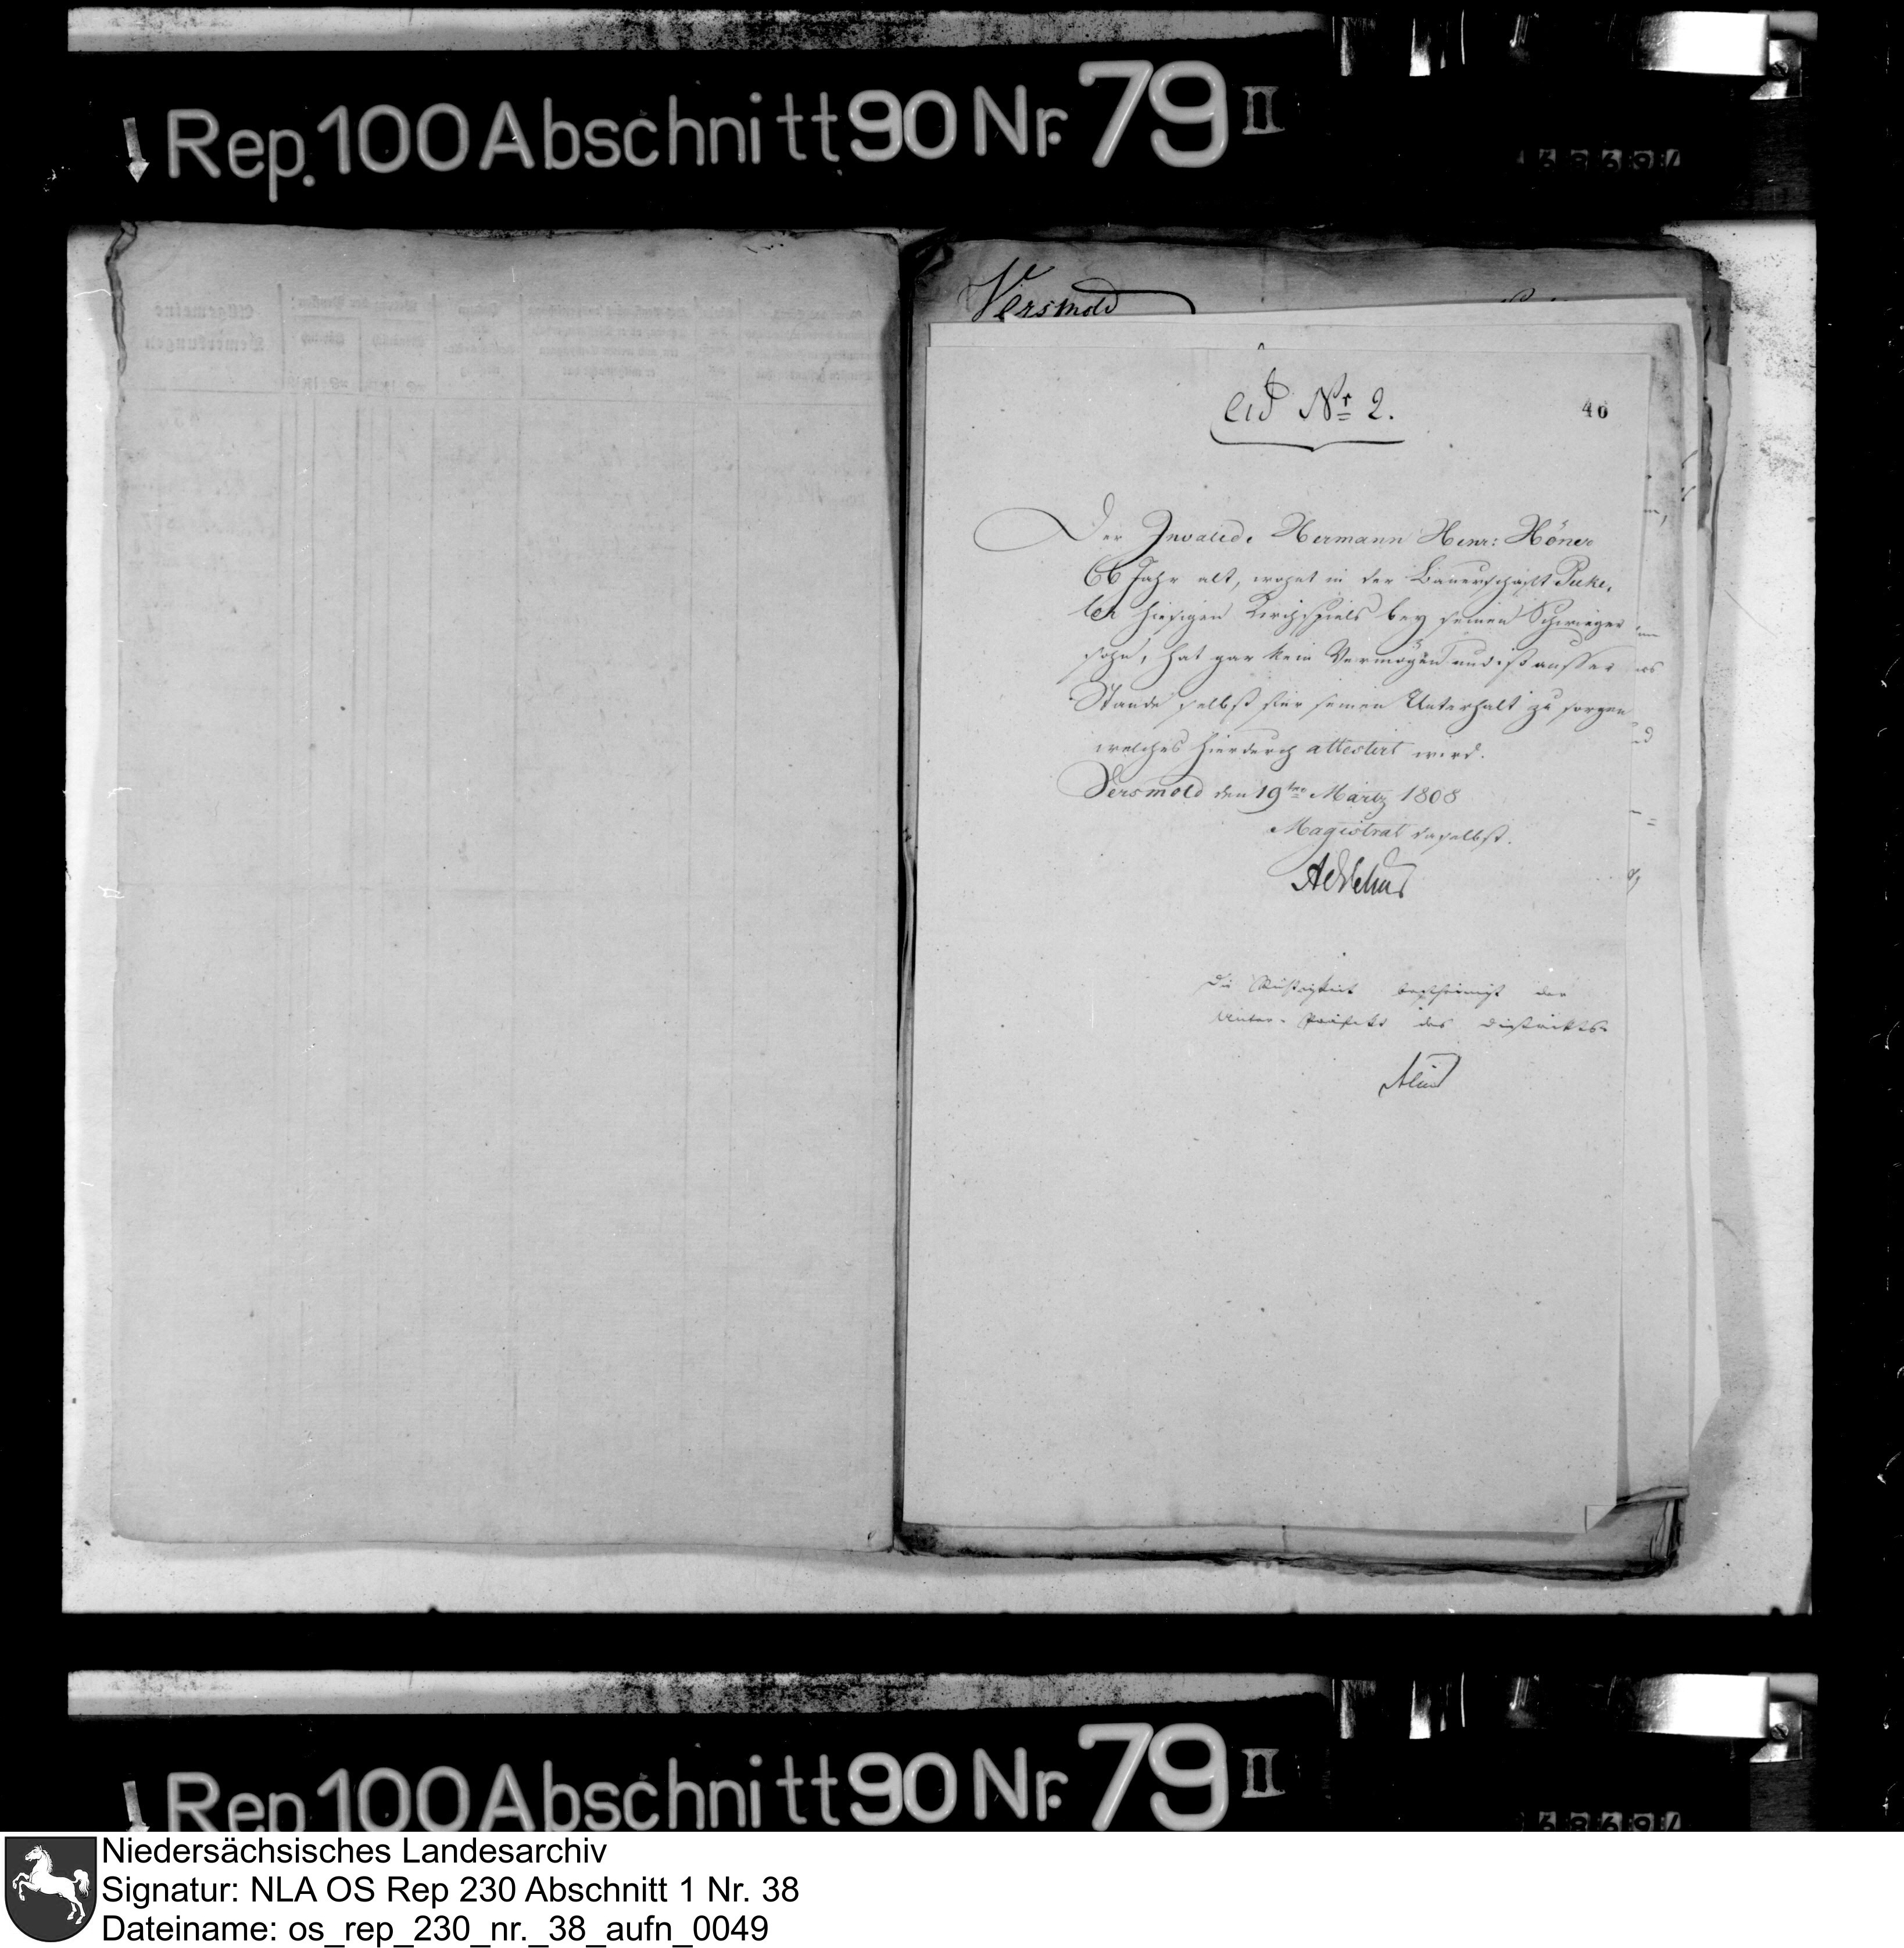 Rep. 100 Abschnitt 90 Nr. 79 II
Versmold
ad Nr 2.
46
Der Invalide Hermann Henr: Höner
66 Jahr alt, wohnt in der Bauerschaft Pecke,
loh hiesigen Kirchspiels bey seinen Schwieger
sohn, hat gar kein Vermögen und ist ausser
Stande selbst für seinen Unterhalt zu sorgen
welches hierdurch attestirt wird.
Versmold den 19ten Märtz 1808
Magistrat daselbst.
Die Richtigkeit bescheinigt der
Unter-Präfekt des Districkts
Rep 100 Abschnitt 90 Nr. 79 II
Niedersächsisches Landesarchiv
Signatur: NLA OS Rep 230 Abschnitt 1 Nr. 38
Dateiname: os_rep_230_nr._38_aufn_0049